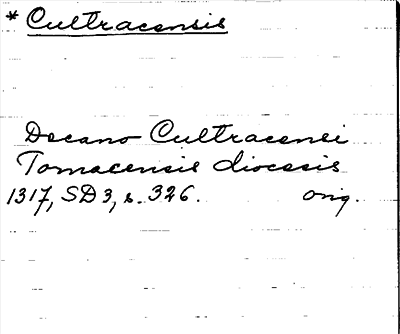 * Cultracensis
Decano Cultracensi
Tornacensis diocesis
1317, SD3, s. 326. orig.